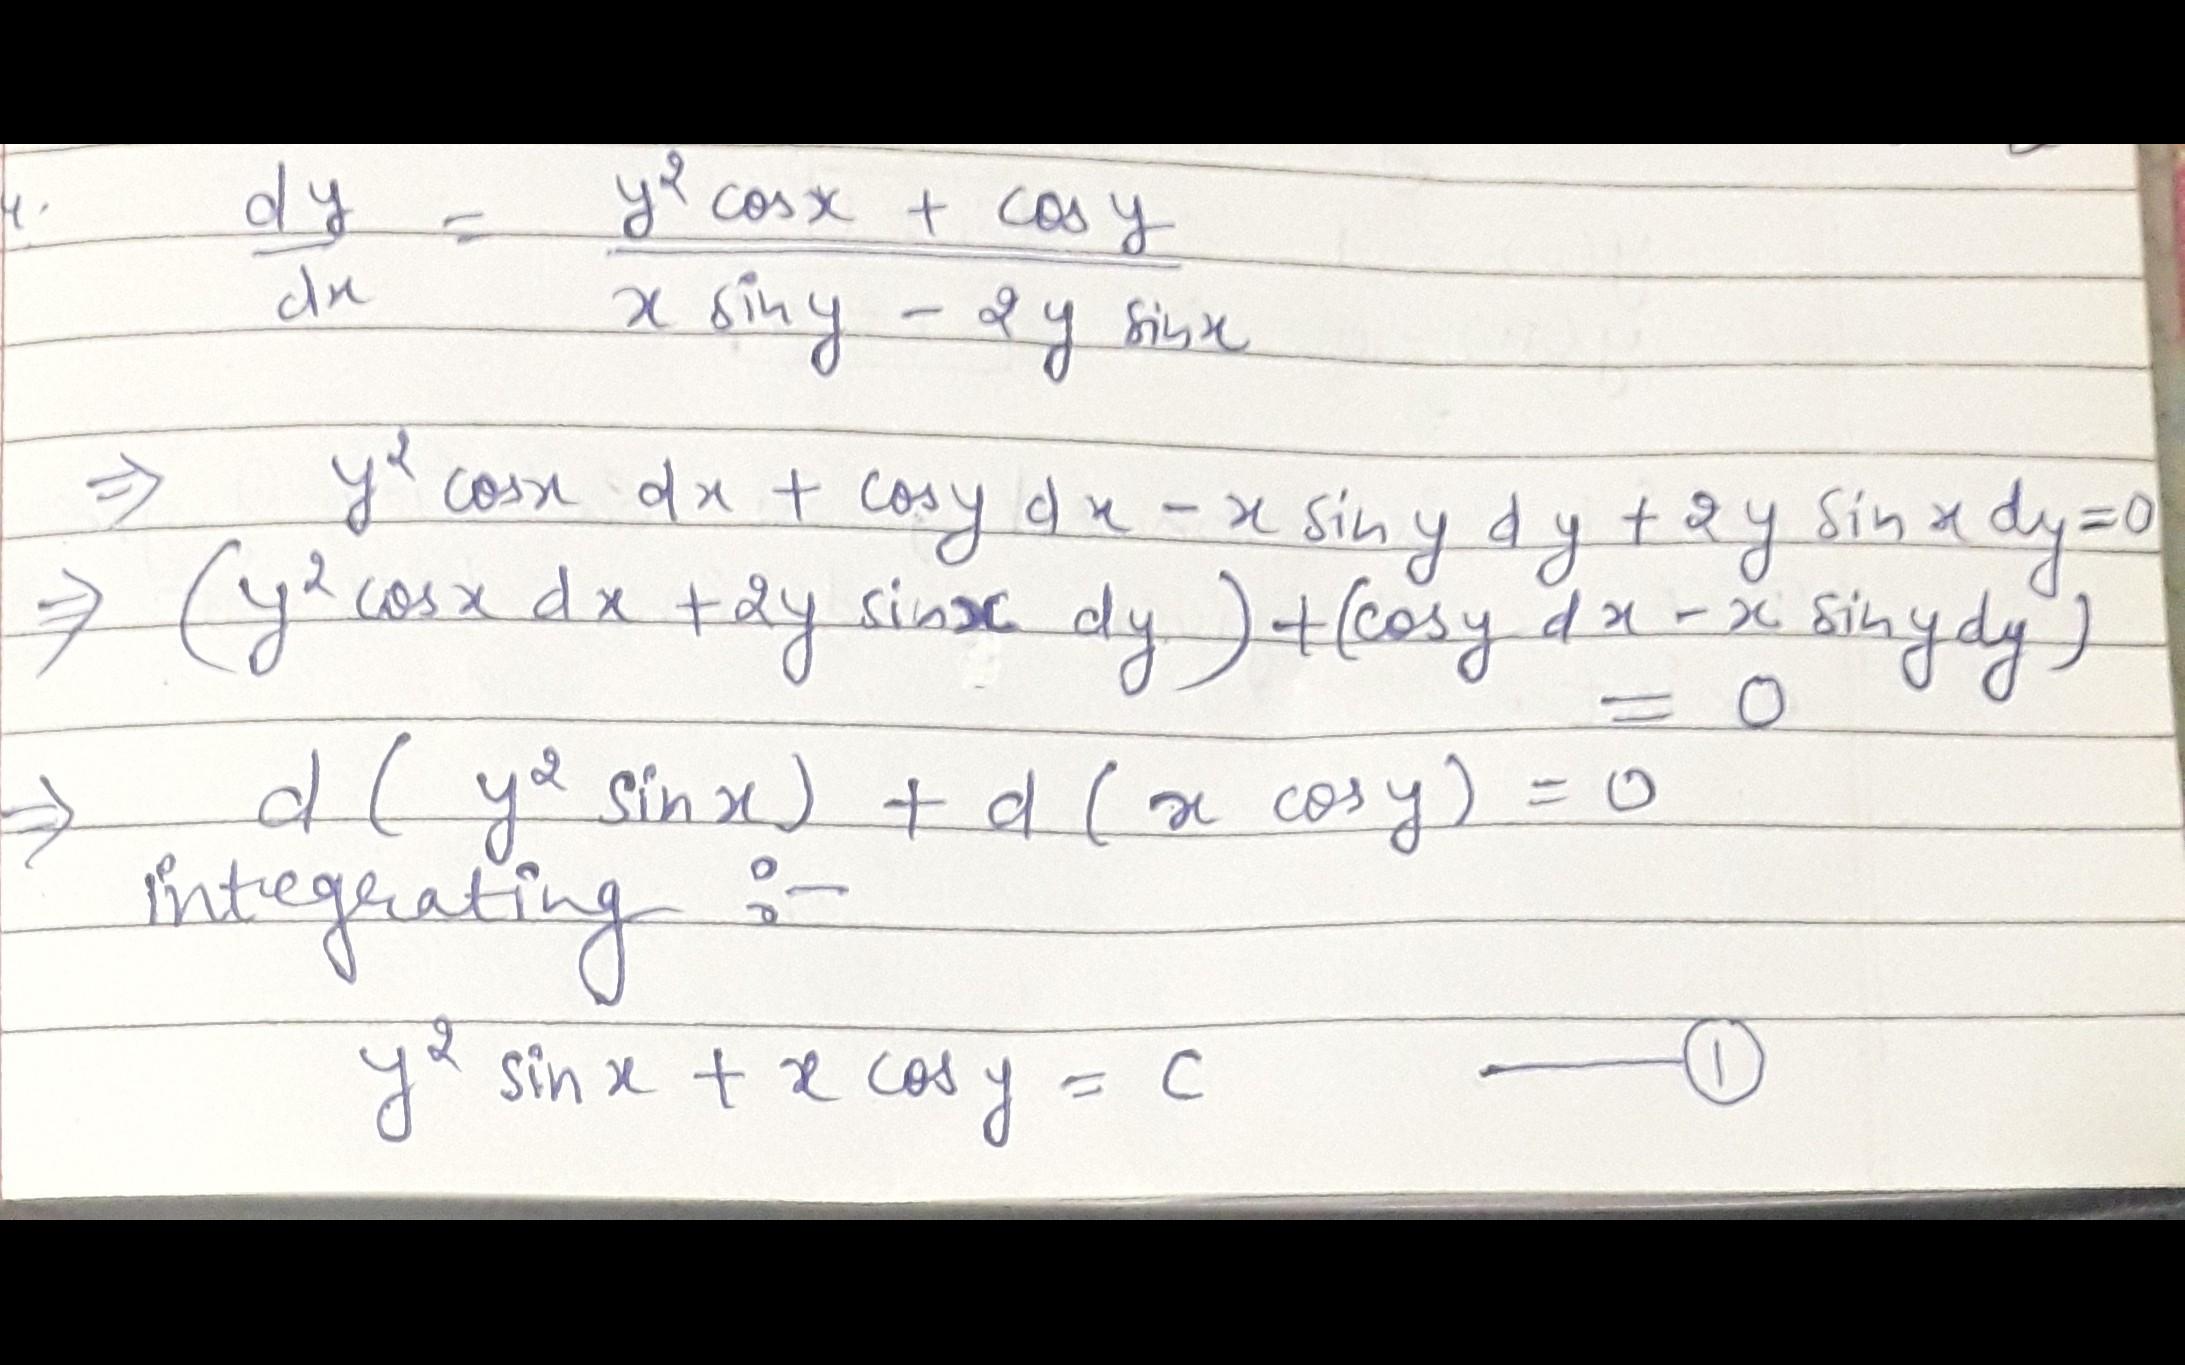 4.
dy/dx = (y² cosx + cosy)/(x siny - 2y sinx)
⇒ y² cosx dx + cosy dx - x siny dy + 2y sinx dy = 0
⇒ (y² cosx dx + 2y sinx dy) + (cosy dx - x siny dy)
= 0
⇒ d(y² sinx) + d(x cosy) = 0
integrating :-
y² sinx + x cosy = c —— ①